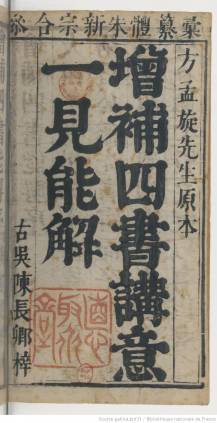 彙纂體朱新宗合參
方孟旋先生原本
增補四書講意
一見能解
古吳陳長卿梓
Source gallica.bnf.fr / Bibliothèque nationale de France